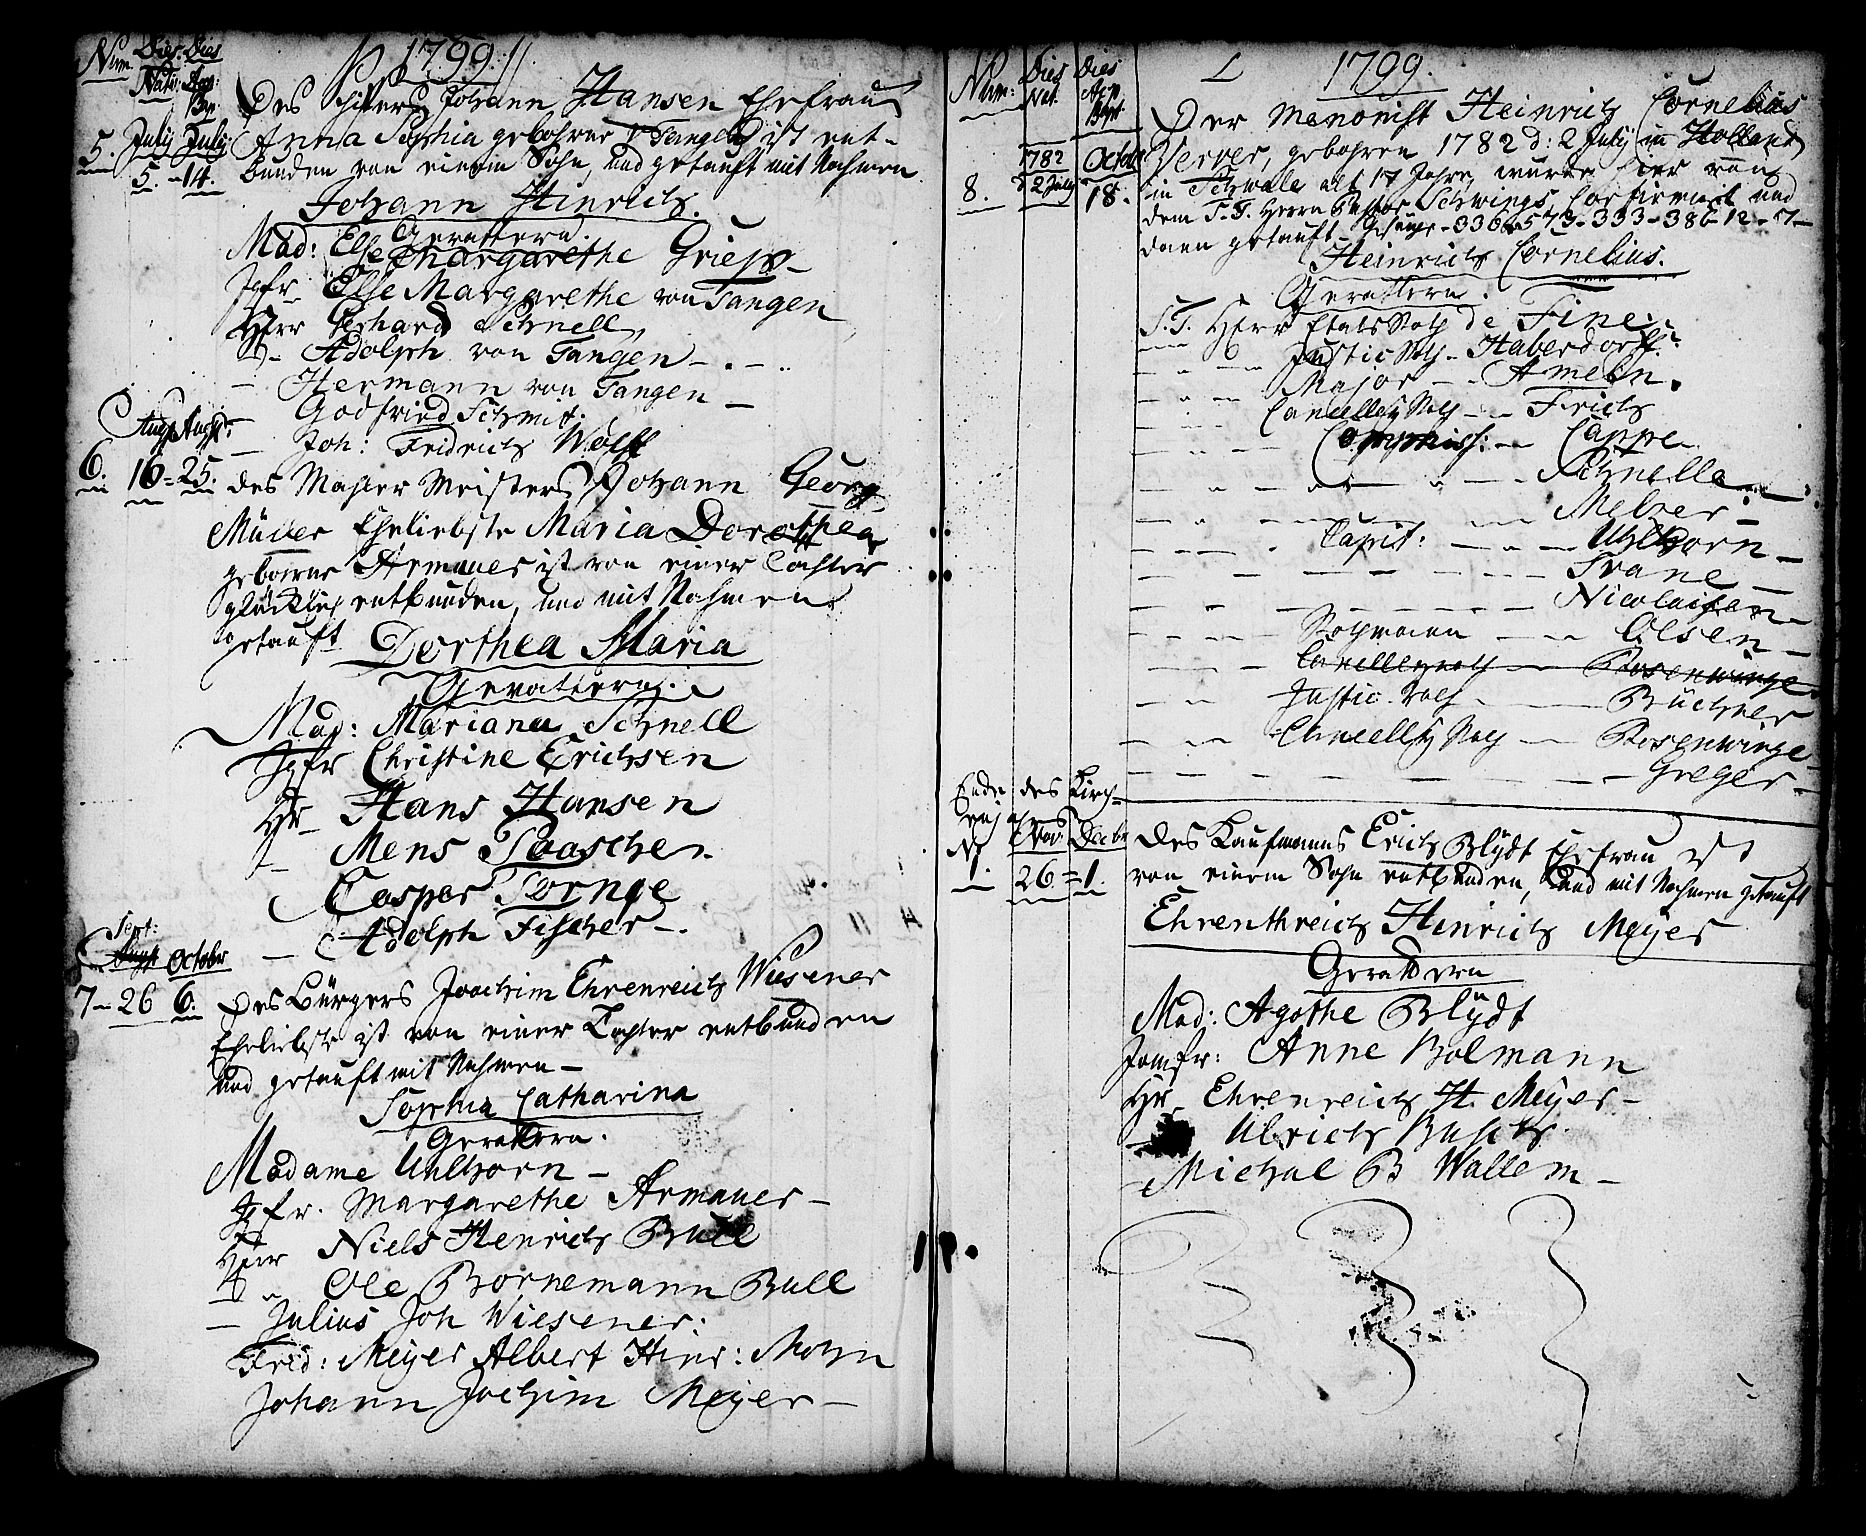 Num. Dies Dies
Nativ: Bap:
1799.
Des Schiffers Johann Hansen Ehefrau
5. July July Anna Sophia gebohrne v Tangen ist ent-
5. - 14. bunden von einem Sohn, und getauft mit Nahmen
Johann Hinrich.
Gevattern.
Mad: Else Margarethe Griep
Jgfr Else Margarethe von Tangen
Herr Gerhard Schnell,
Adolph von Tangen
Hermann von Tangen
Godfried Schmit.
Augst Augst:
Joh: Fridrich Wolff
6. 16 = 25. des Mahler Meisters Johann Georg
Müller Eheliebste Maria Dorothea
gebohrne Armauer ist von einer Tochter
glücklich entbunden, und mit Nahmen
getauft Dorthea Maria
Gevattern.
Mad: Mariana Schnell
Jgfr Christine Erichsen
Hr Hans Hansen
Mens Paasche
Casper Tornøe
Adolph Fischer
Sept:
Augst October
7 - 26 6. Des Bürgers Joachim Ehrenreich Wiesener
Eheliebste ist von einer Tochter entbunden
und getauft mit Nahmen
Sophia Catharina
Gevattern.
Madame Uhlhorn
Jgfr. Margarethe Armauer
Herr Niels Henrich Bull
Ole Bornemann Bull
Julius Joh Wiesener:
Fred: Meyer Albert Hinr: Mohn
Johann Jochim Meyer
Num: Dies Dies
Nat.
1799.
Der Menonist Heinrich Cornelius
1782 October Verver, gebohren 1782 d: 2 July in Holland
8. d 2 July 18. in alt 17 Jahre, wurde hier von
dem S.T. Herrn Pastor Schwings, Confirmirt und
dann getauft Gesänge - 336 - 573 - 333 - 386 - 12 - 7
Heinrich Cornelius.
Gevattern.
S.T. Herr Etats Rath de Fine
Justic Rath Haberdorff
Major Ameln.
Cancelley Rath Friech
Commiss: Cappe
Schnelle
Melzer
Capit: Uhlhorn
Trane
Nicolaisen
Rathmann Olsen
Cancelleyrath Rosenwinge
Justic Rath Büchner
Cancelley Rath Rosenwinge
Greger
Ende des Kirch-
enjahres
N Nov: Decbr Des Kaufmanns Erich Blÿdt Ehefrau ist
1. 26 = 1. von einem Sohn entbunden, und mit Nahmen getauft
Ehrenthreich Hinrich Meÿer
Gevattern
Mad: Agathe Blÿdt
Jomfr: Anne Bolmann
Hr Ehrenreich H. Meÿer
Ulrich Busch
Michael B Wallem